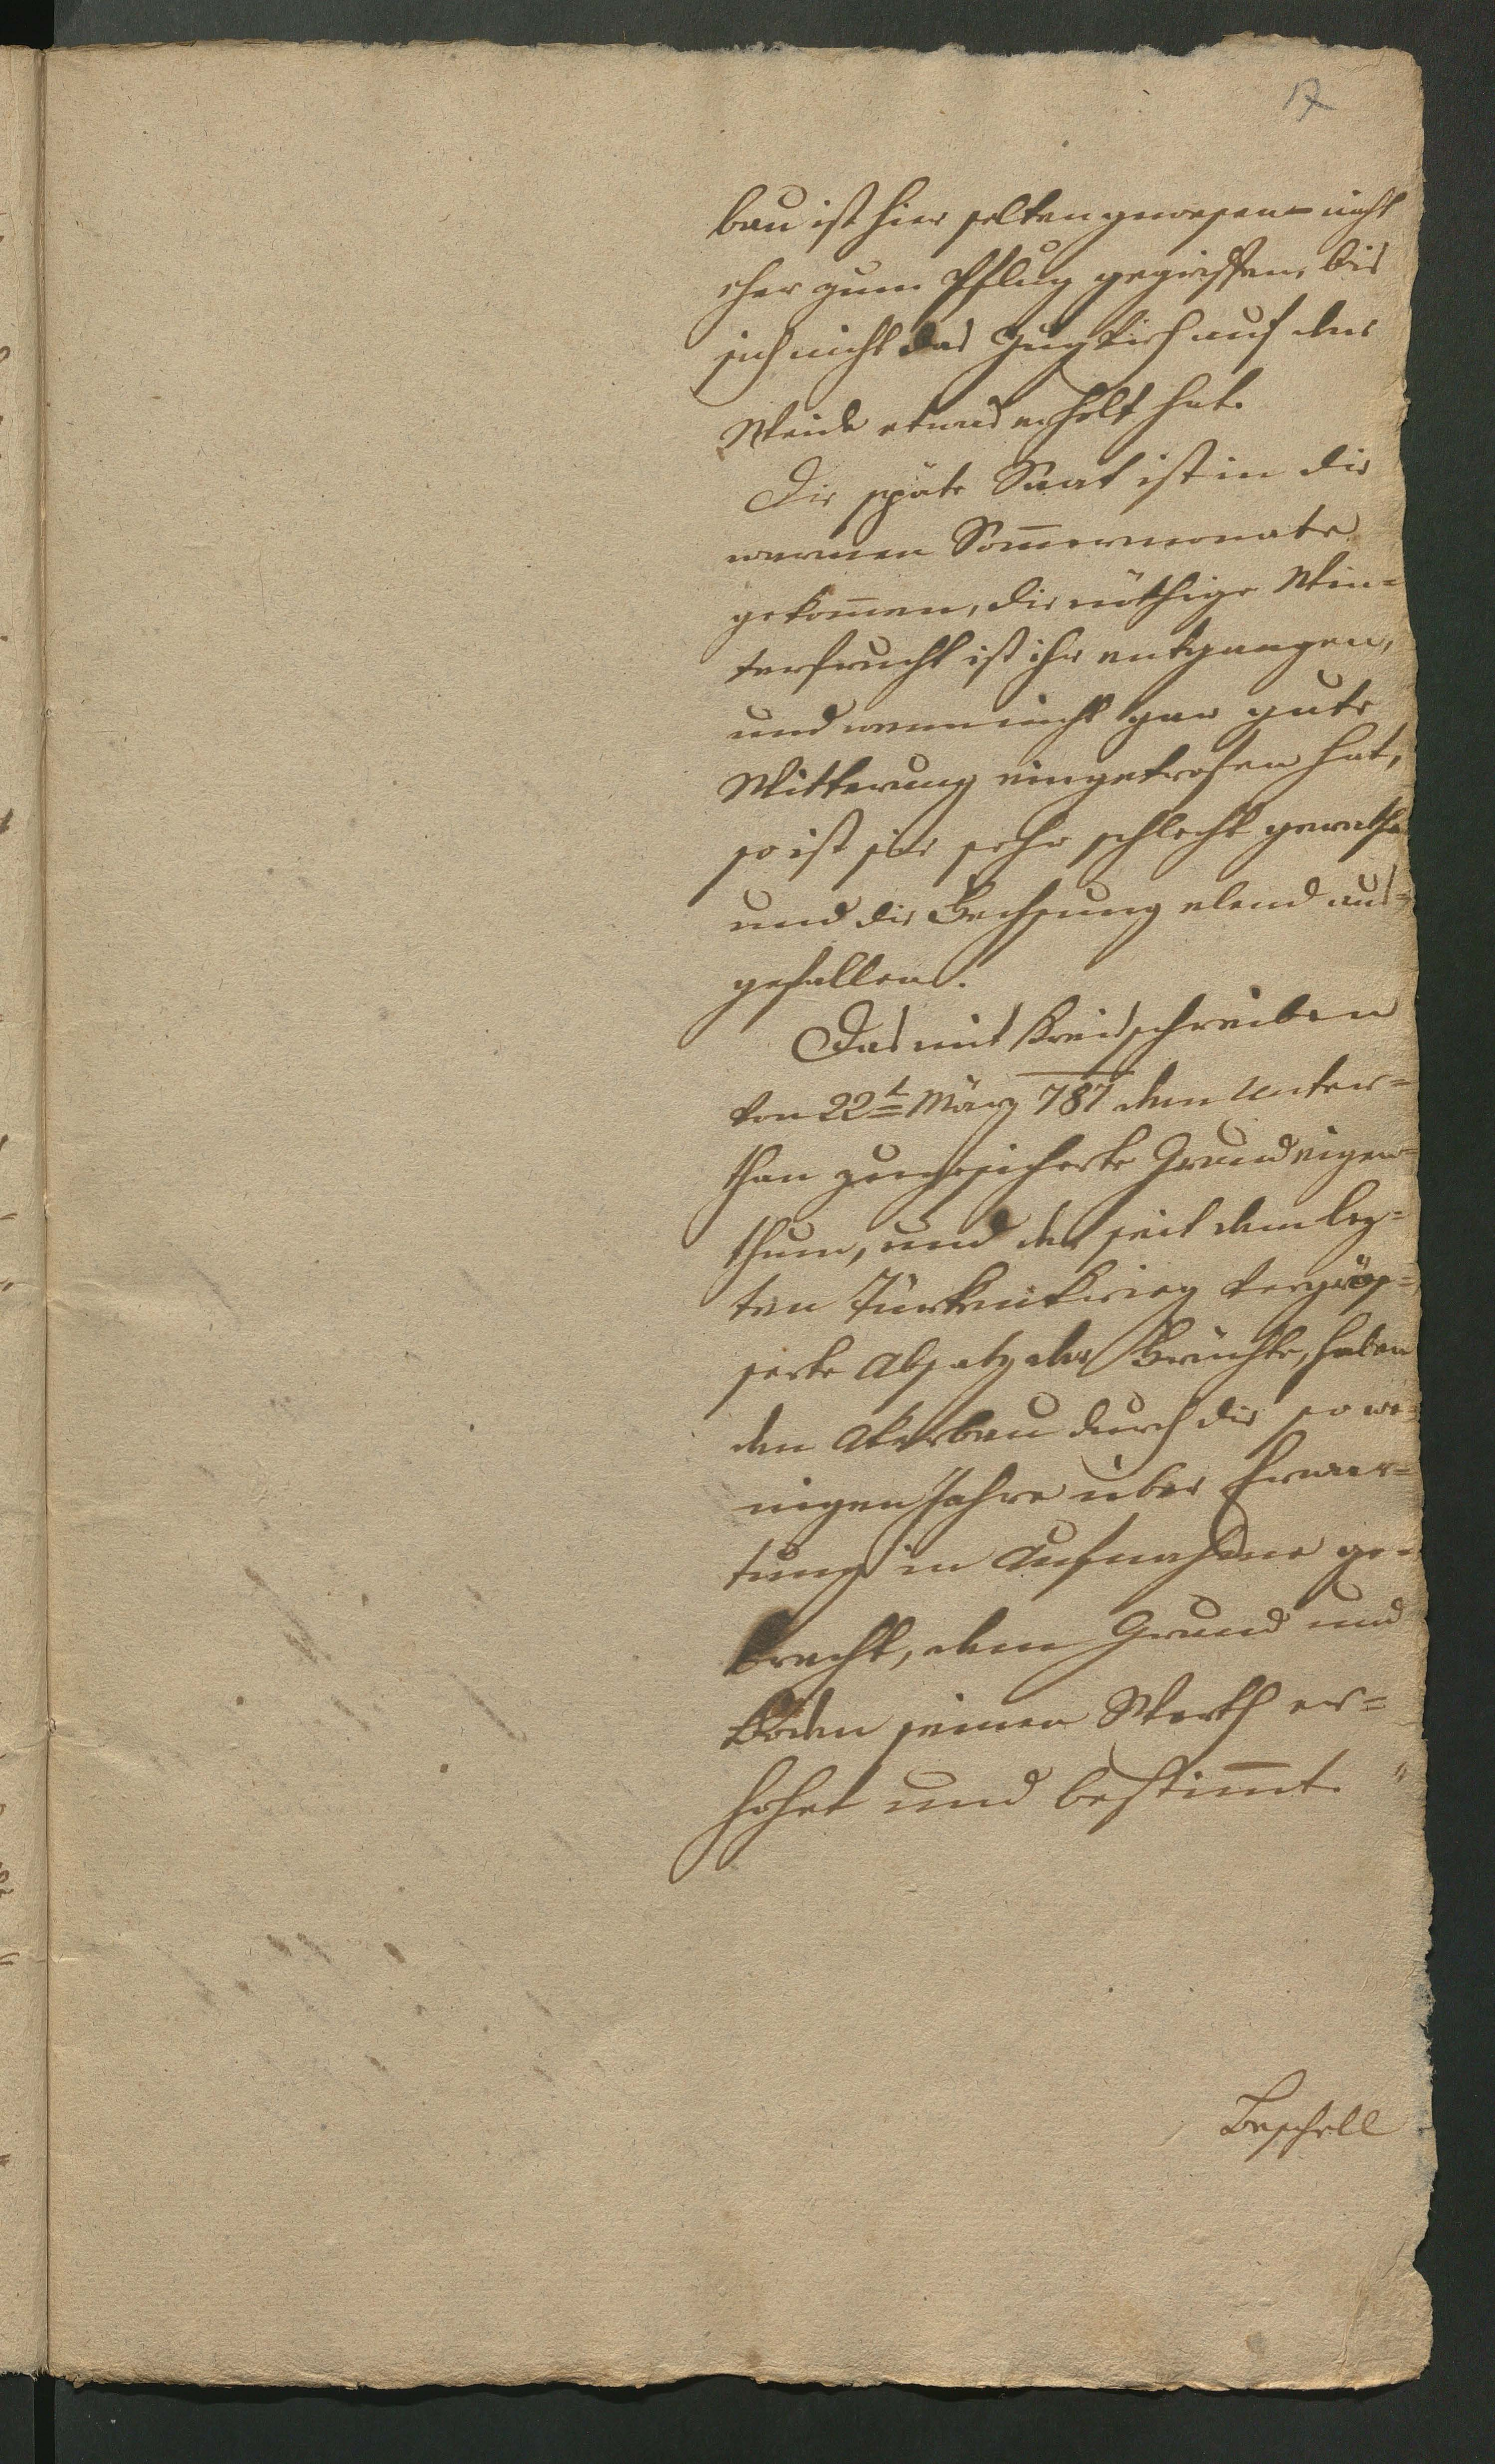 17
bau ist hier selten gewesen – nicht
eher zum Pflug gegriffen, bis
sich nicht das Zugvieh auf der
Weide etwas erholt hat.
Die späte Saat ist in die
warmen Som̅ermonate
gekom̅en, die nöthige Win=
terfeucht ist ihr entgangen,
und wenn nicht gar gute
Witterung eingetrofen hat,
so ist sie sehr schlecht gerathen
und die Fechsung elend aus=
gefallen.
Das mit Kreisschreiben
von 22t März 787 dem Unter=
than zugesicherte Grundeigen=
thum, und der seit dem lez=
ten Türkenkrieg vergrös=
serte Absatz der Früchte, haben
den Akerbau durch die so we=
nigen Jahre über Erwar=
tung in Aufnahme ge=
bracht, dem Grund und
Boden seinen Werth er=
höhet und bestim̅t. "